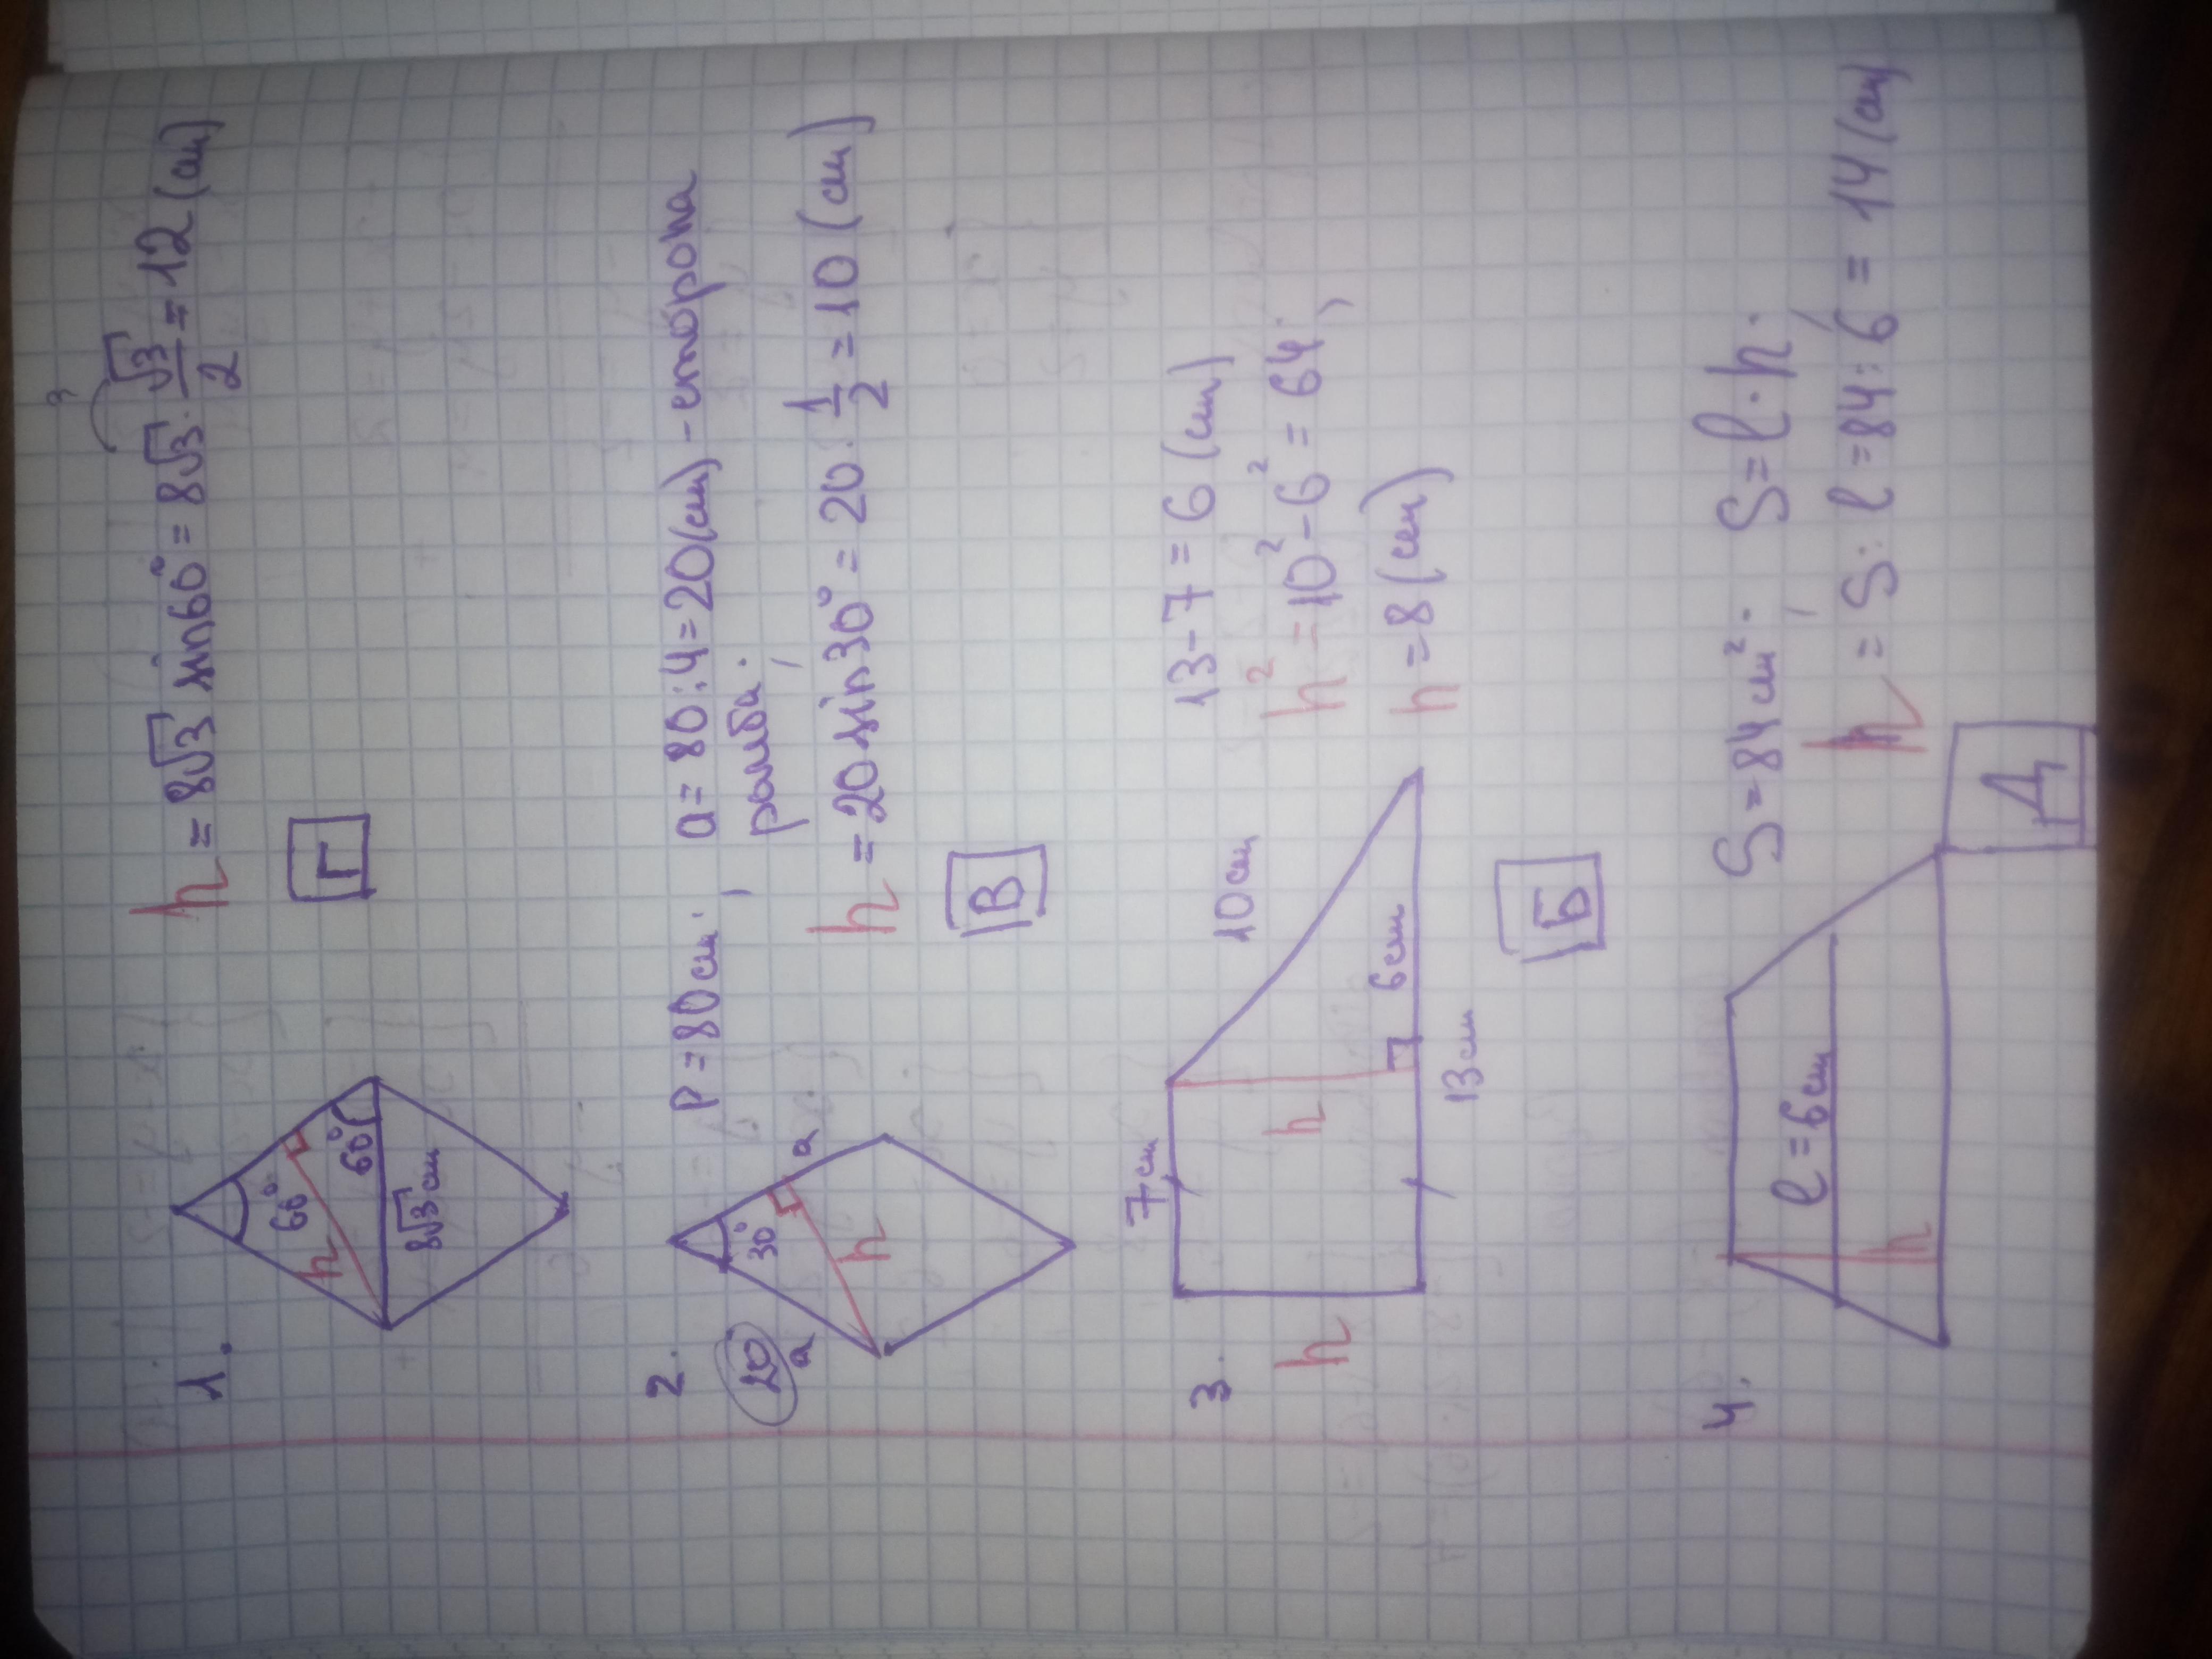 1.
60°
60°
h
8√3 см
h = 8√3 sin60° = 8√3 · √3/2 = 12 (см)
Г
2.
20
a
a
30°
h
P = 80 см; a = 80 : 4 = 20 (см) - сторона
ромба;
h = 20 sin30° = 20 · 1/2 = 10 (см)
В
3.
h
7 см
10 см
h
6 см
13 см
13 - 7 = 6 (см)
h² = 10² - 6² = 64;
h = 8 (см)
Б
4.
l = 6 см
h
S = 84 см²; S = l · h;
h = S : l = 84 : 6 = 14 (см)
Д